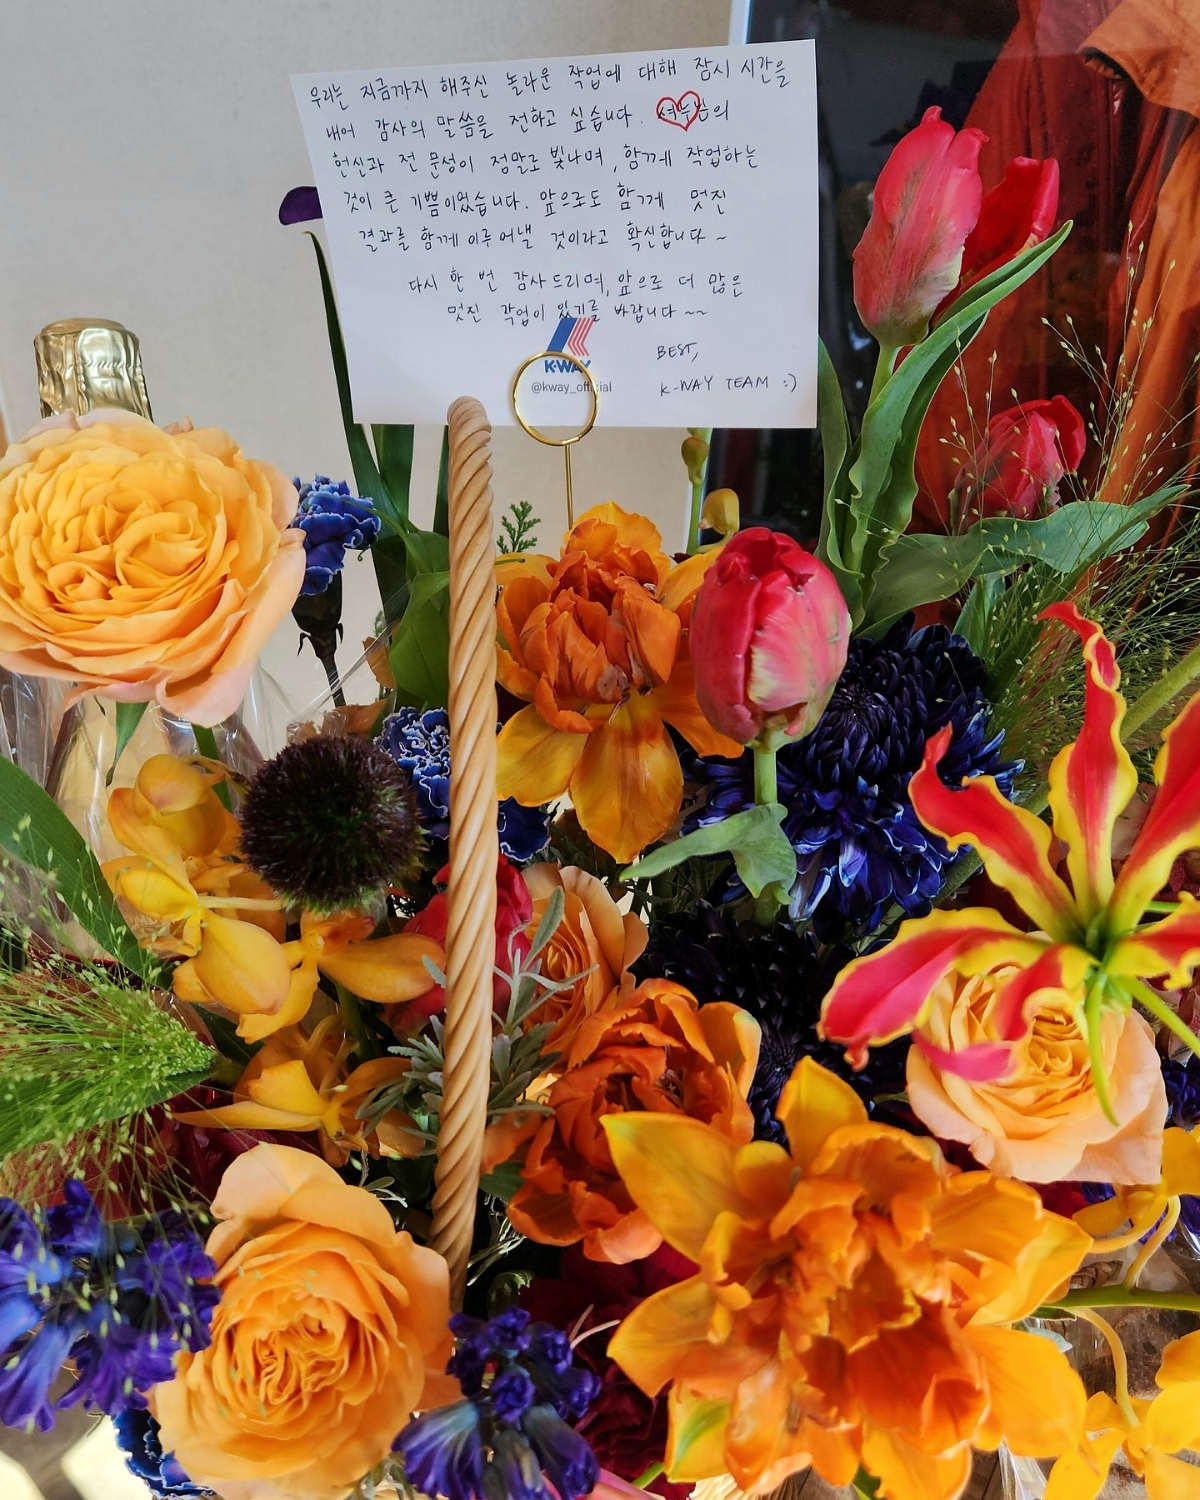 우리는 지금까지 해주신 놀라운 작업에 대해 잠시 시간을
내어 감사의 말씀을 전하고 싶습니다.
헌신과 전문성이 정말로 빛나며, 함께 작업하는
것이 큰 기쁨이었습니다. 앞으로도 함께 멋진
결과를 함께 이루어낼 것이라고 확신합니다~
다시 한 번 감사드리며, 앞으로 더 많은
멋진 작업이 있기를 바랍니다~~
K-WAY
@kway_official
BEST,
K-WAY TEAM :)